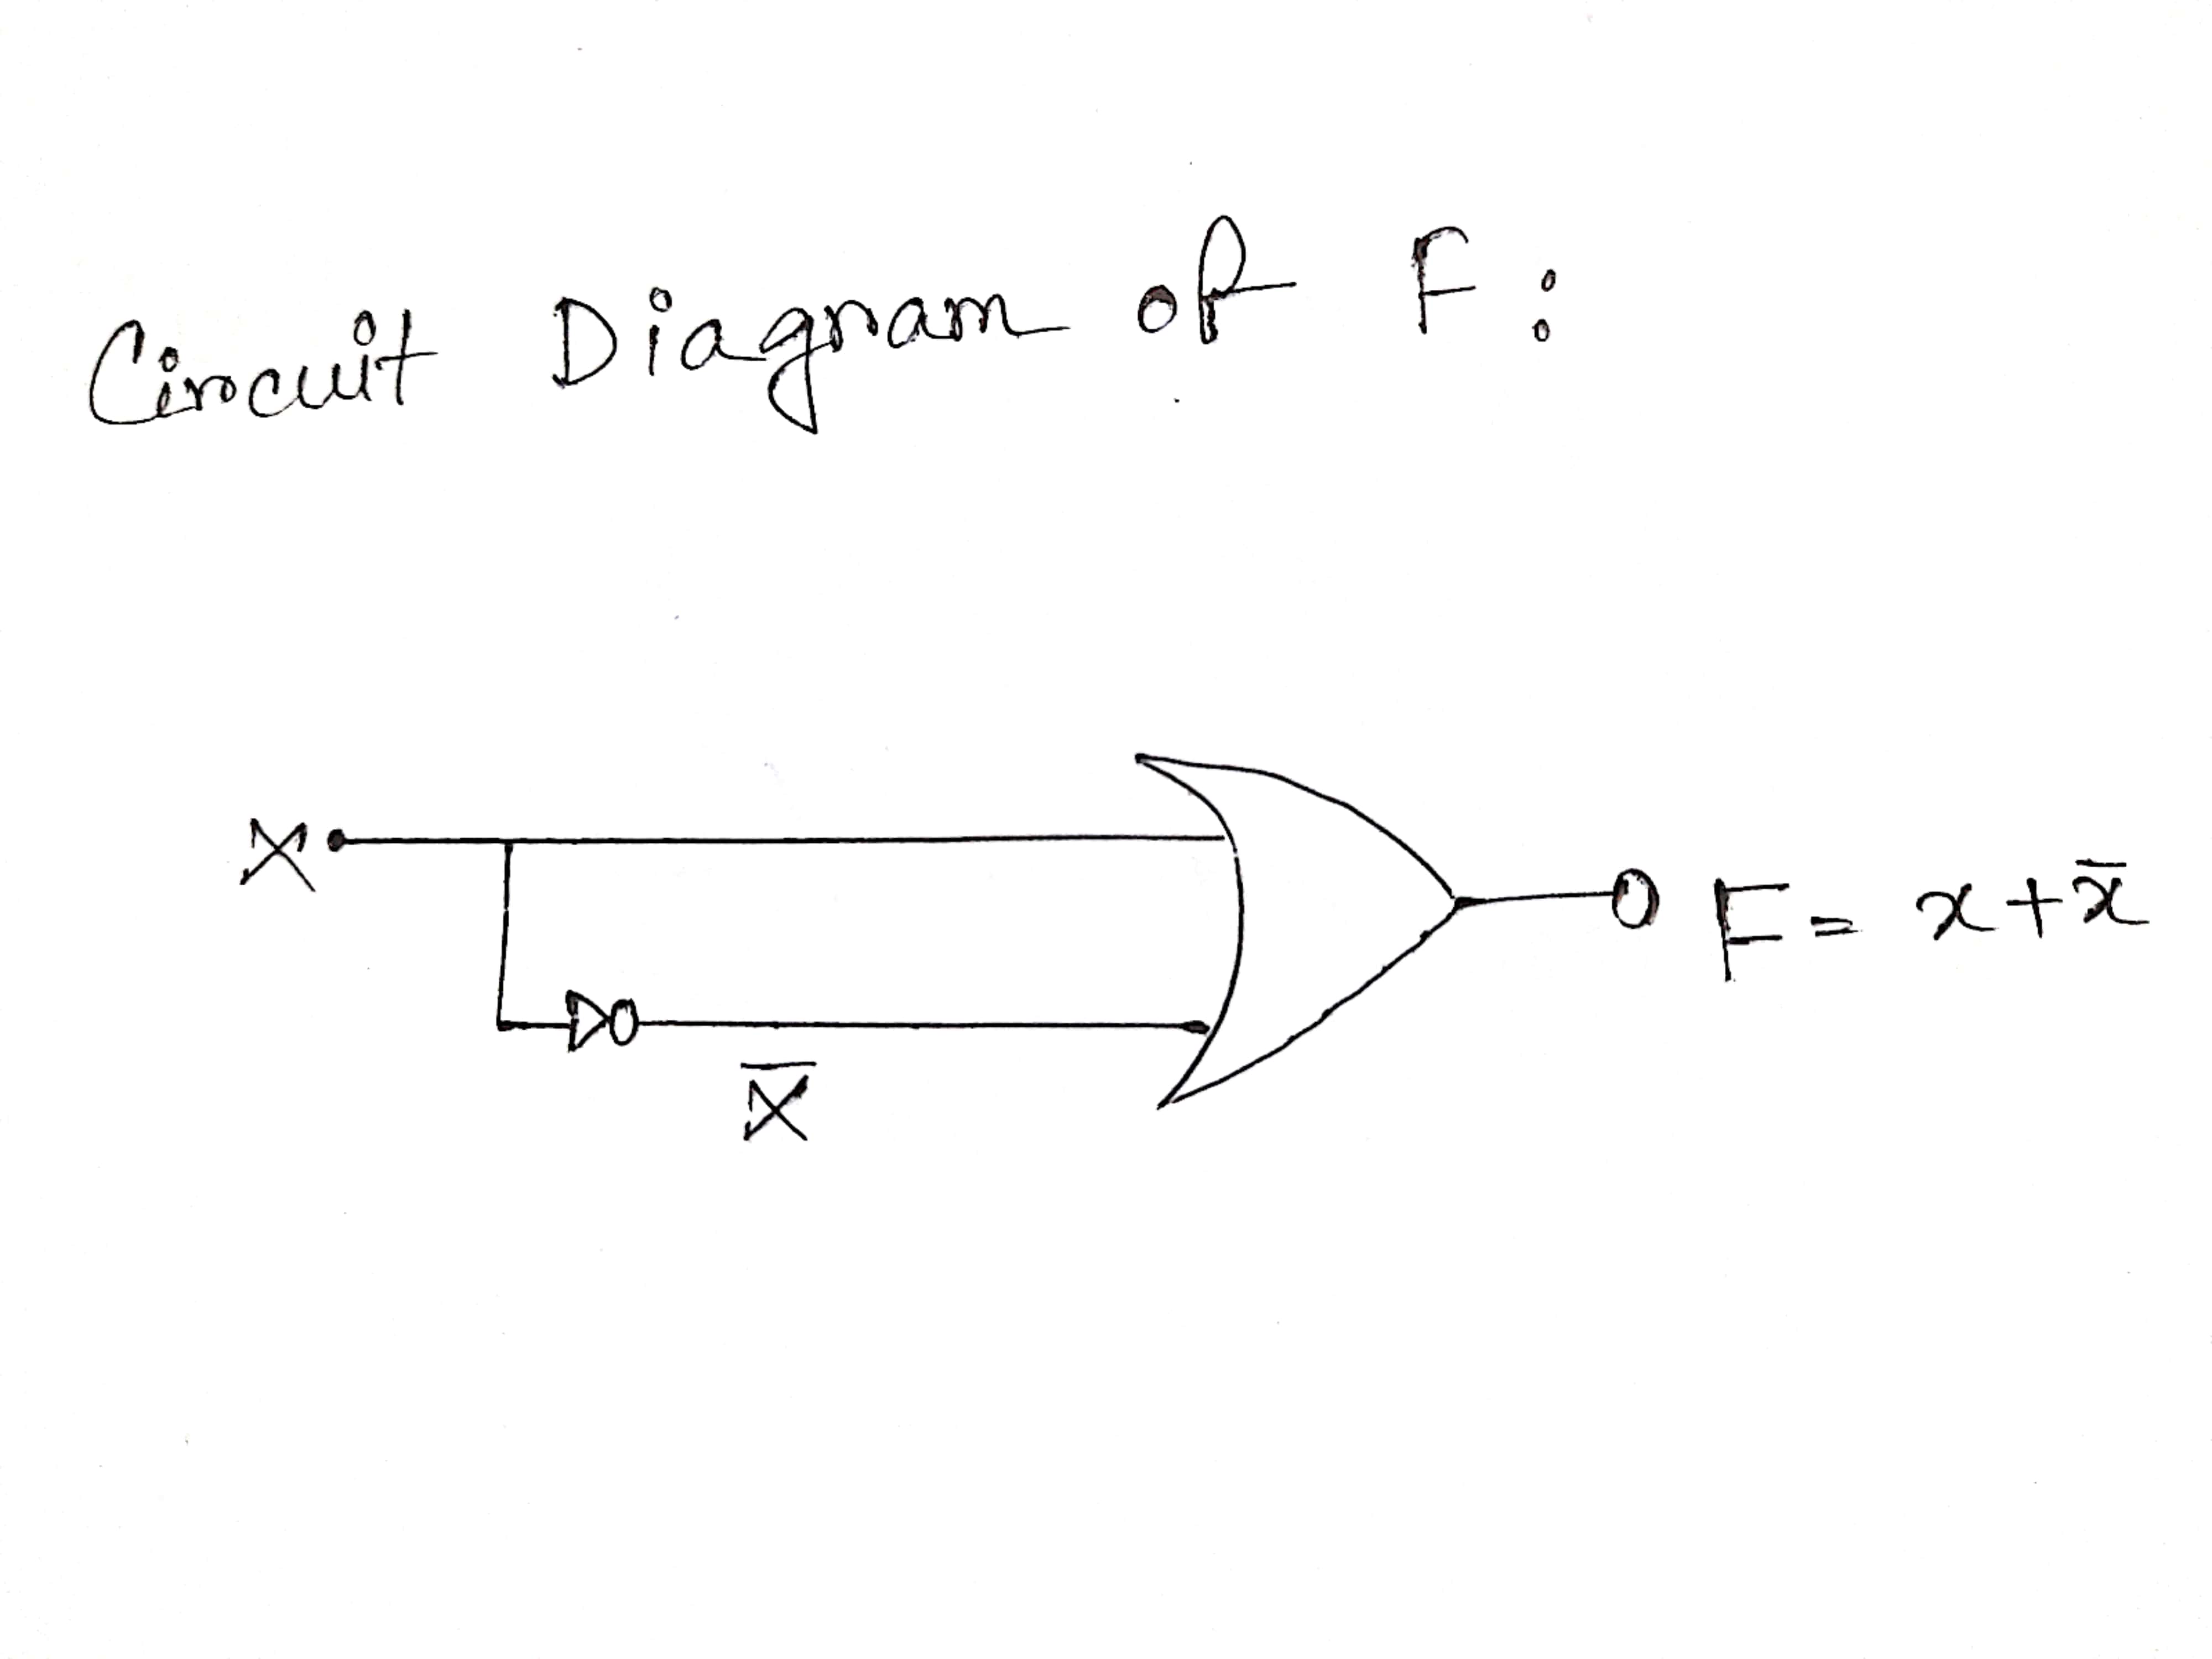 Circuit Diagram of F:
X
F = x + x̄
X̄